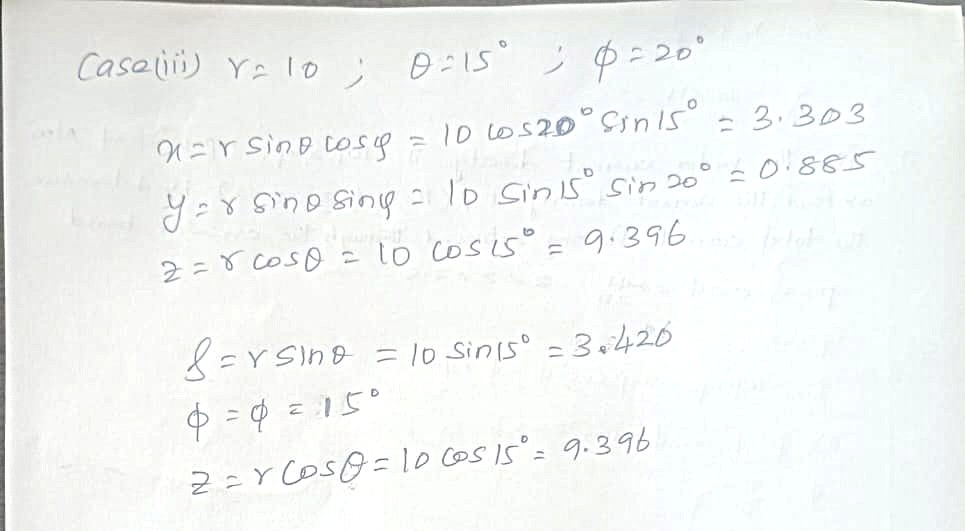 Case(iii) r=10 ; θ=15° ; φ=20°
x=r sinθ cosφ = 10 cos20° sin15° = 3.303
y=r sinθ sinφ = 10 sin15° sin20° = 0.885
z=r cosθ = 10 cos15° = 9.396
ρ=r sinθ = 10 sin15° = 3.420
φ=φ=15°
z=r cosθ=10 cos15°= 9.396